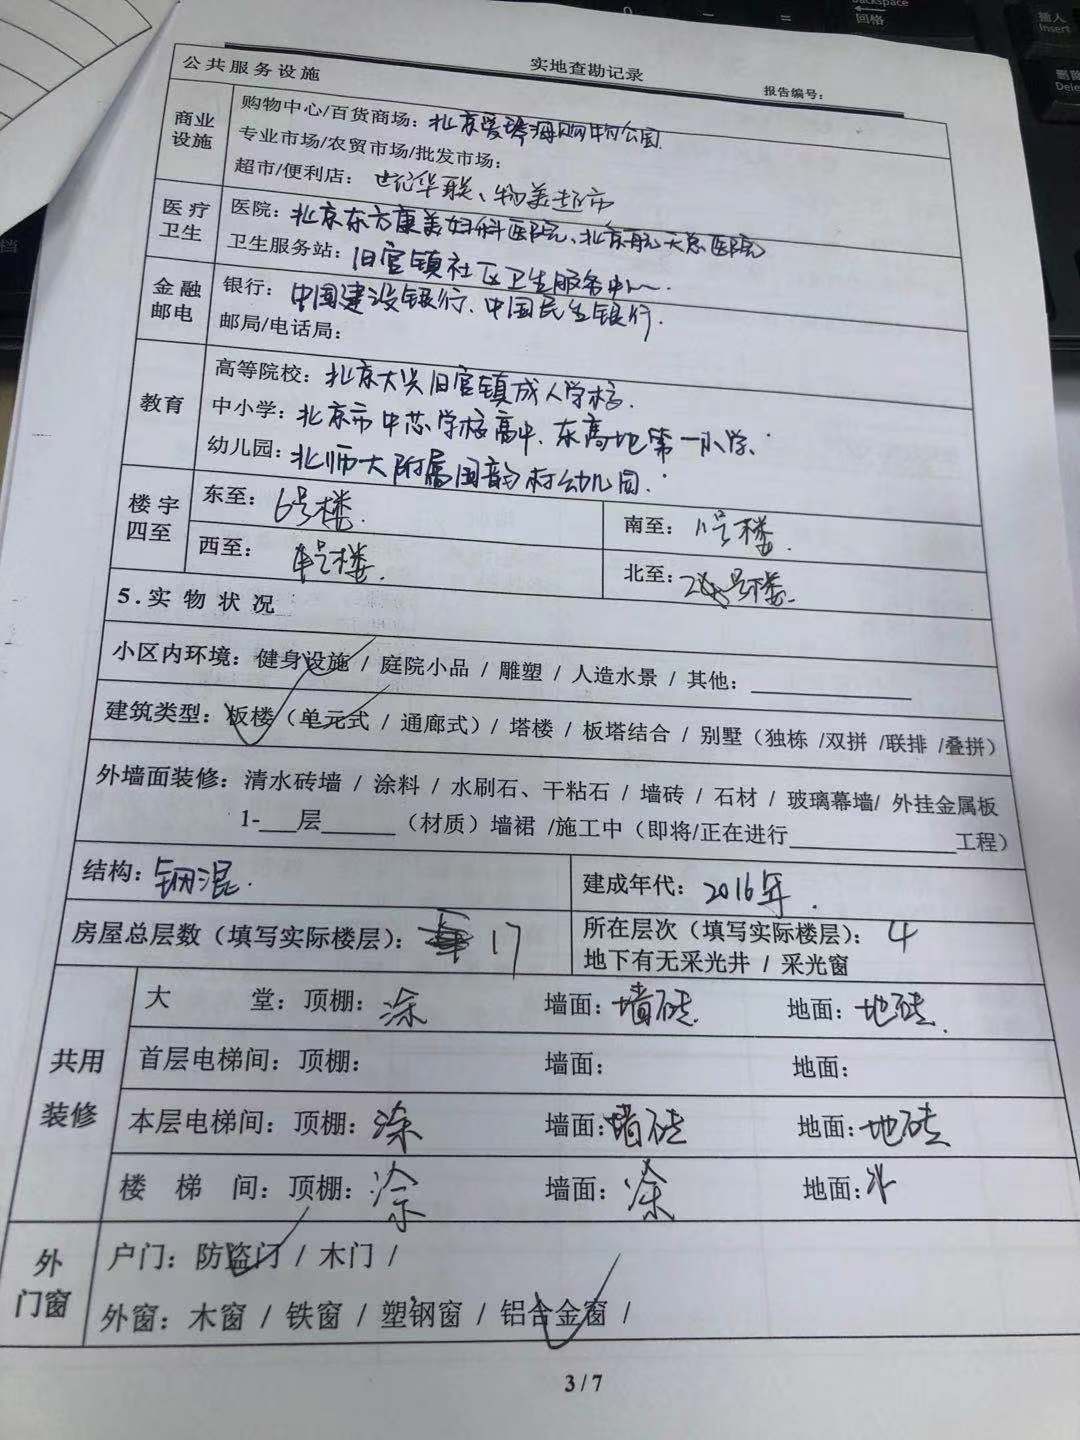 实地查勘记录
报告编号：
公共服务设施
商业设施
购物中心/百货商场：北京爱琴海购物公园
专业市场/农贸市场/批发市场：
超市/便利店：世纪华联、物美超市
医疗卫生
医院：北京东方康美妇科医院、北京航天总医院
卫生服务站：旧宫镇社区卫生服务中心.
金融邮电
银行：中国建设银行、中国民生银行.
邮局/电话局：
教育
高等院校：北京大兴旧宫镇成人学校.
中小学：北京市中芯学校高中、东高地第一小学.
幼儿园：北师大附属国韵村幼儿园.
楼宇四至
东至：6号楼. 南至：11号楼.
西至：号楼. 北至：号楼.
5.实物状况
小区内环境：健身设施 / 庭院小品 / 雕塑 / 人造水景 / 其他：
建筑类型：板楼（单元式 / 通廊式）/ 塔楼 / 板塔结合 / 别墅（独栋 /双拼 /联排 /叠拼）
外墙面装修：清水砖墙 / 涂料 / 水刷石、干粘石 / 墙砖 / 石材 / 玻璃幕墙/ 外挂金属板
1-___层______（材质）墙裙 /施工中（即将/正在进行______________工程）
结构：钢混. 建成年代：2016年.
房屋总层数（填写实际楼层）：17 所在层次（填写实际楼层）：4
地下有无采光井 / 采光窗
共用装修
大堂：顶棚：涂 墙面：墙砖. 地面：地砖.
首层电梯间：顶棚： 墙面： 地面：
本层电梯间：顶棚：涂 墙面：墙砖 地面：地砖
楼梯间：顶棚：涂 墙面：涂 地面：水
外门窗
户门：防盗门 / 木门 /
外窗：木窗 / 铁窗 / 塑钢窗 / 铝合金窗 /
3/7
Backspace
回格
插入
Insert
删除
Dele
档